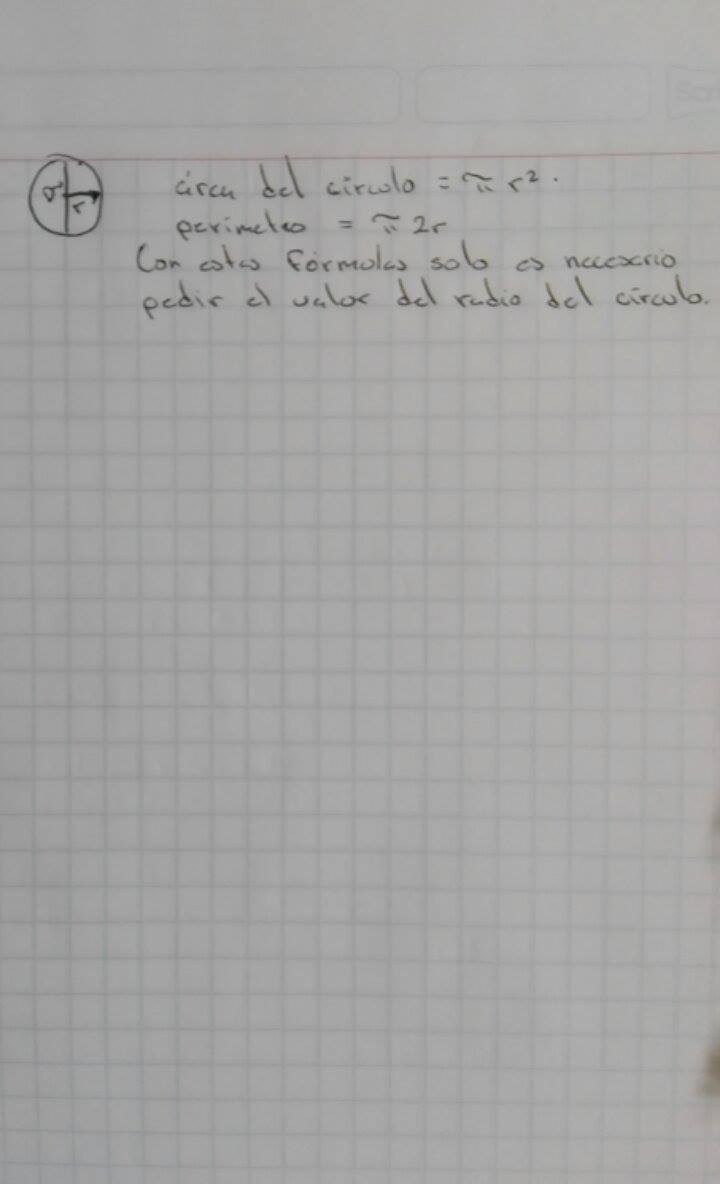 área del círculo = π r².
perímetro = π 2r
Con estas fórmulas solo es necesario
pedir el valor del radio del círculo.
r